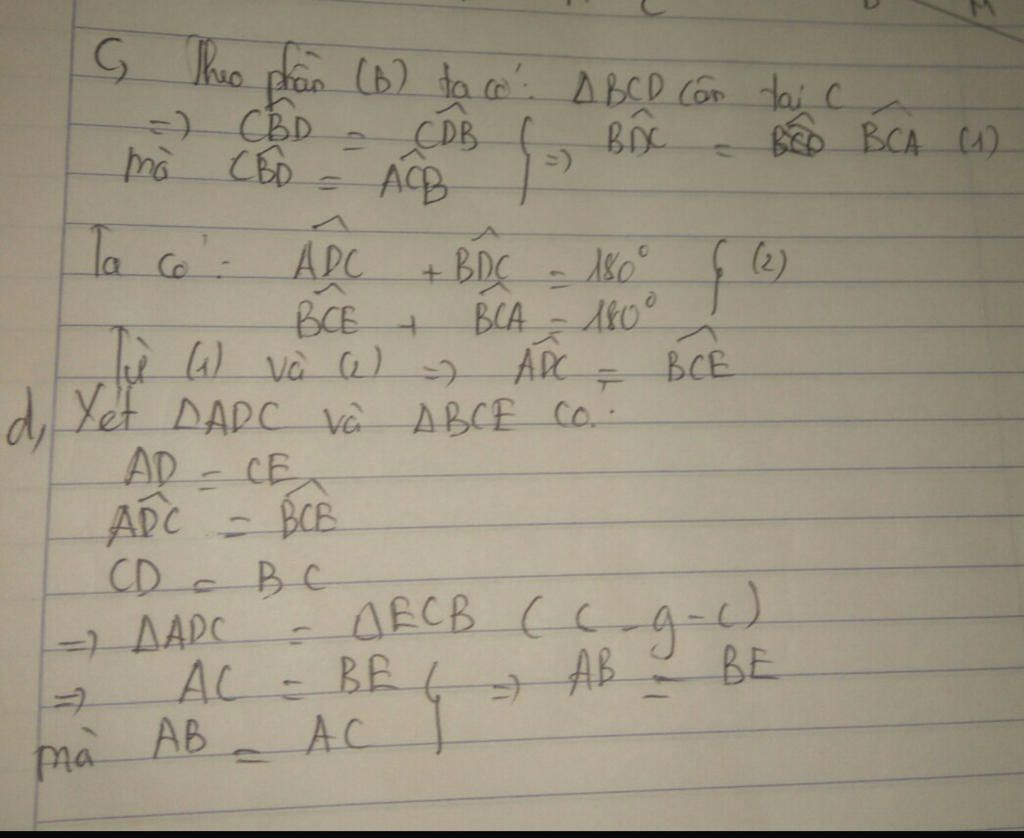 C, Theo phần (b) ta có: ΔBCD cân tại C
=> \widehat{CBD} = \widehat{CDB} } => \widehat{BDC} = \widehat{BCA} (1)
mà \widehat{CBD} = \widehat{ACB}
Ta có: \widehat{ADC} + \widehat{BDC} = 180° } (2)
\widehat{BCE} + \widehat{BCA} = 180°
Từ (1) và (2) => \widehat{ADC} = \widehat{BCE}
d, Xét ΔADC và ΔBCE có:
AD = CE
\widehat{ADC} = \widehat{BCE}
CD = BC
=> ΔADC = ΔECB (c-g-c)
=> AC = BE } => AB = BE
mà AB = AC